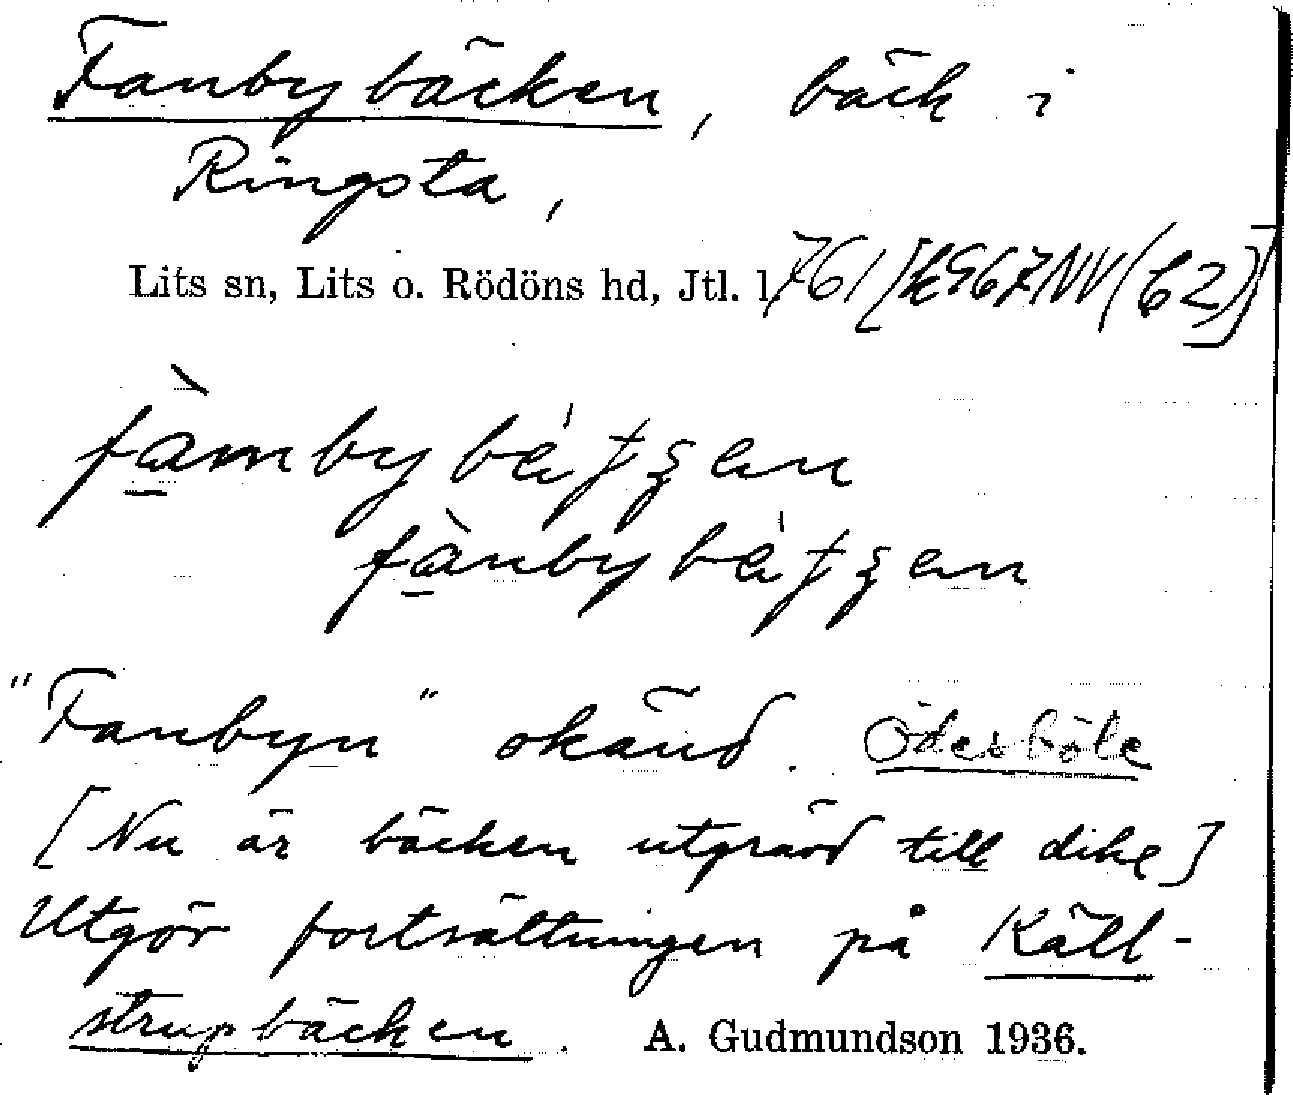 Fanbybäcken, bäck i
Ringsta,
Lits sn, Lits o. Rödöns hd, Jtl. l. 761 [k967NV(62)]
"Fanbyn" okänd. Ödesböle
[Nu är bäcken utgrävd till dike]
Utgör fortsättningen på Käll-
strupbäcken. A. Gudmundson 1936.